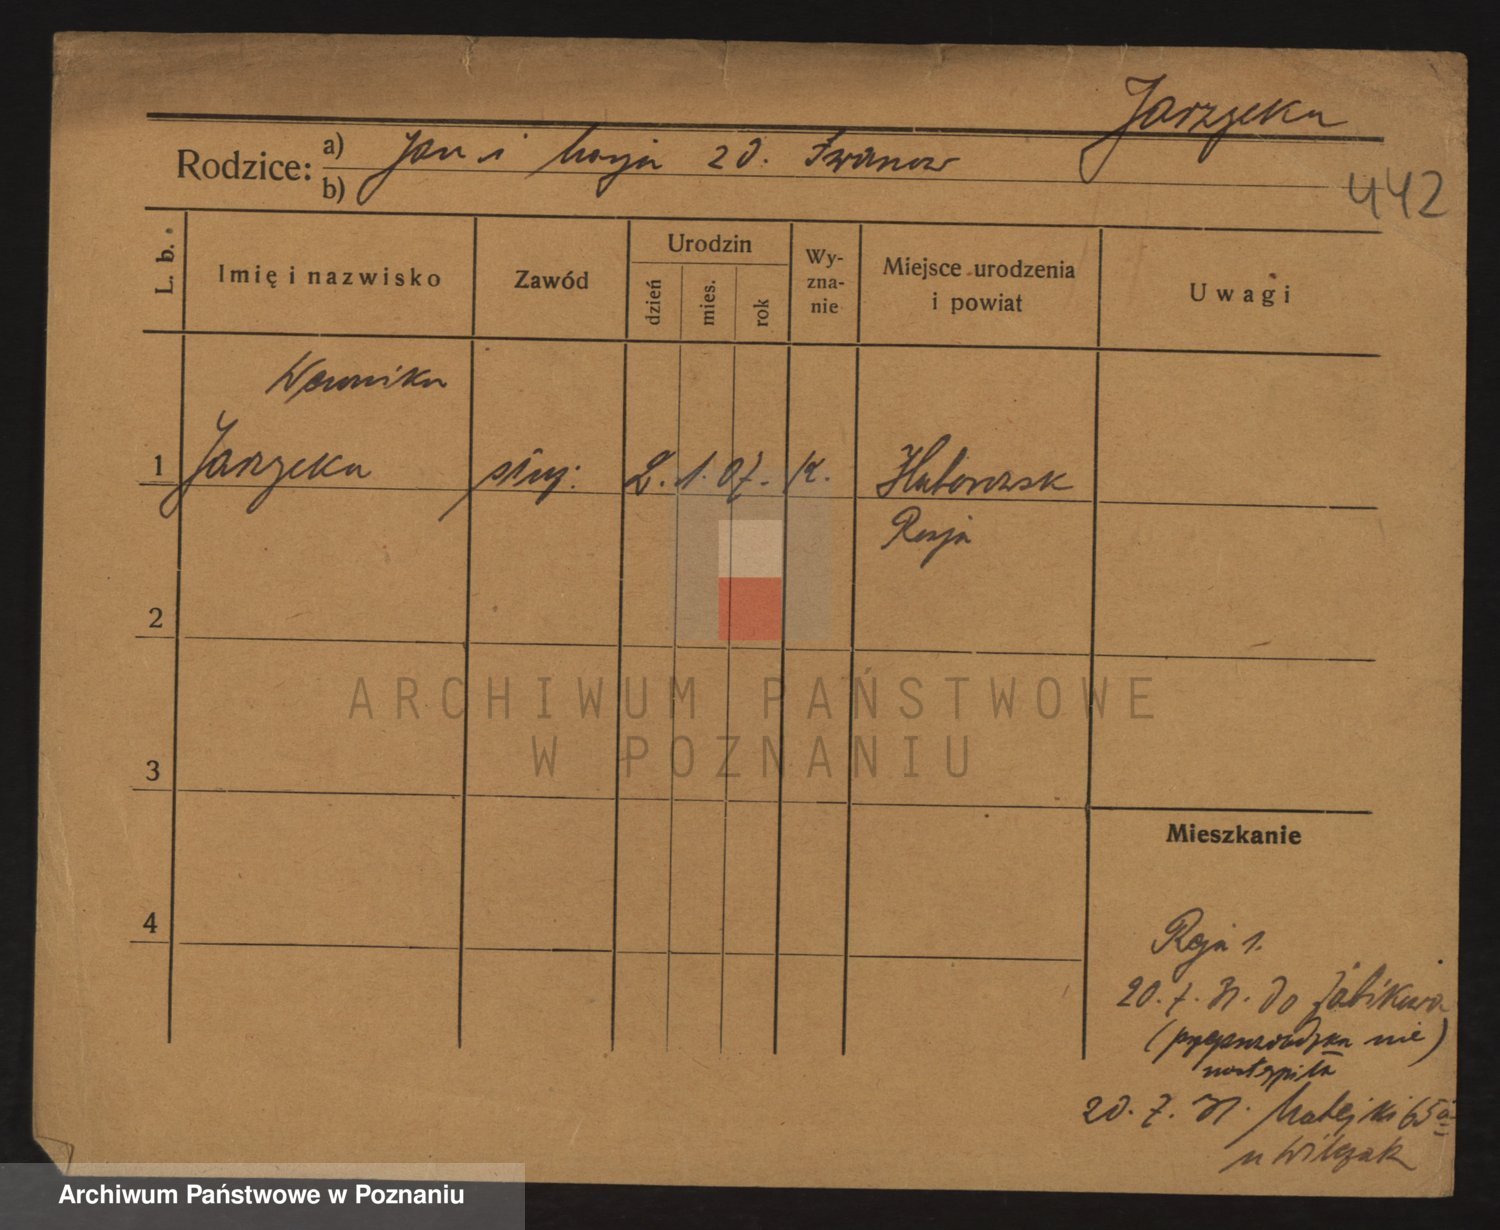 Jarzycka
442
Rodzice: a) Jan i Marja zd. Iwanow
b)
L. b. Imię i nazwisko Zawód Urodzin dzień mies. rok Wy-zna-nie Miejsce urodzenia i powiat Uwagi
Weronika
1 Jarzycka służ: 2. 1. 07. K.
Rosja
2
3
4
Mieszkanie
Reja 1.
20. 7. 31. do Żabikowa
(przeprowadzka nie)
nastąpiła
20. 7. 31. Matejki 65a
u Wilczak
ARCHIWUM PAŃSTWOWE
W POZNANIU
Archiwum Państwowe w Poznaniu